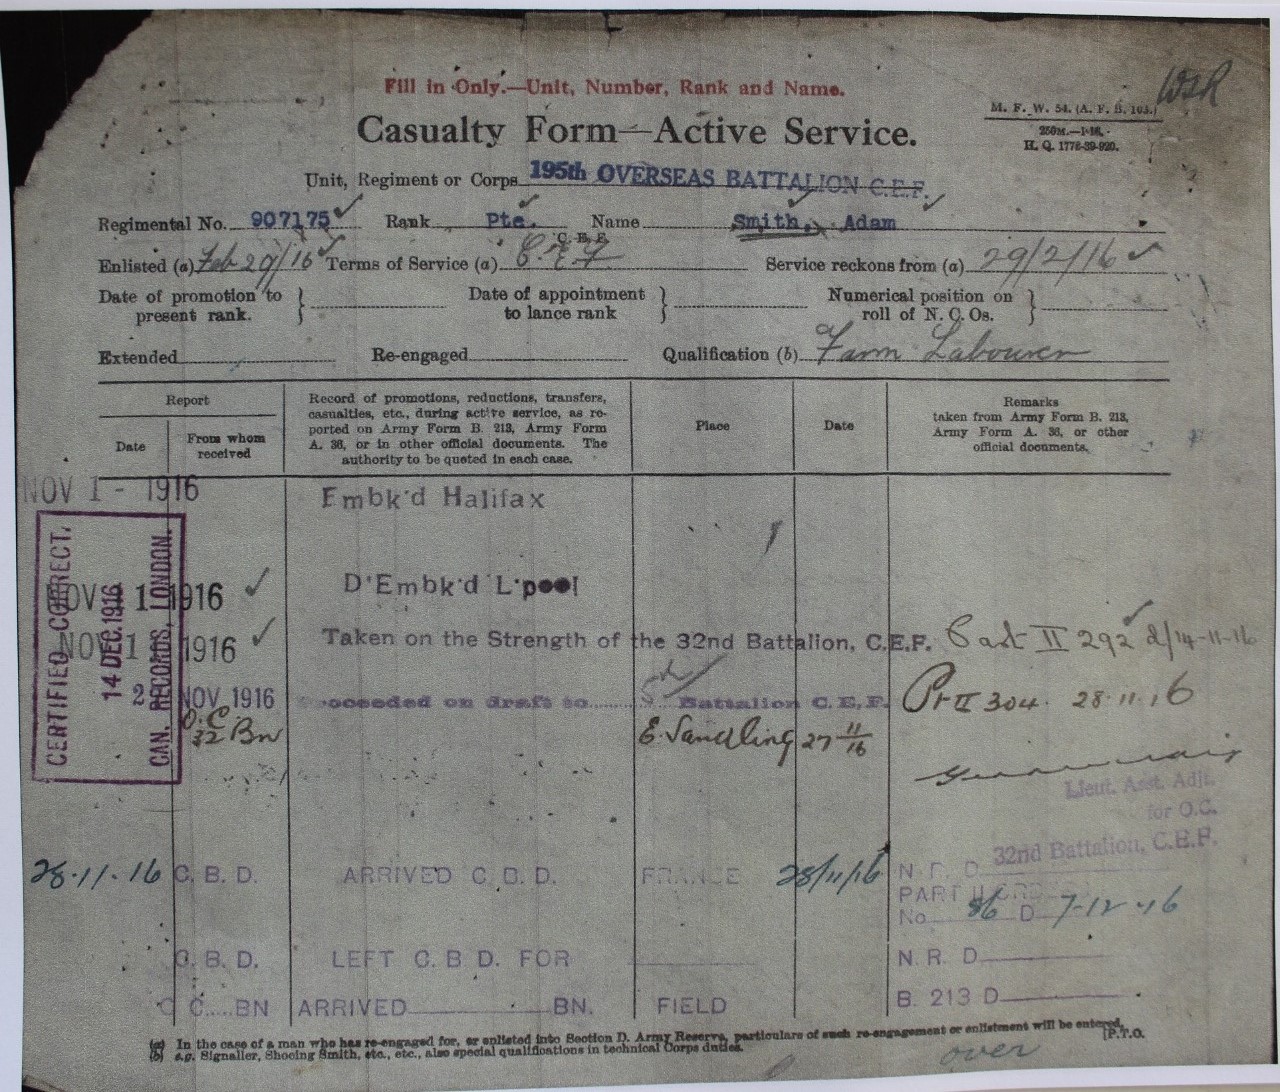 WSR
Fill in Only.—Unit, Number, Rank and Name.
M. F. W. 54. (A. F. B. 103.)
Casualty Form—Active Service.
250M.—1-16.
H. Q. 1778-39-920.
Unit, Regiment or Corps 195th OVERSEAS BATTALION C.E.F.
Regimental No. 907175 Rank Pte. Name Smith, Adam
C.E.F.
Enlisted (a) Feb 29/16 Terms of Service (a) C.E.F Service reckons from (a) 29/2/16
Date of promotion to present rank. } Date of appointment to lance rank } Numerical position on roll of N. C. Os. }
Extended Re-engaged Qualification (b) Farm Labourer
Report
Date
From whom received
Record of promotions, reductions, transfers,
casualties, etc., during active service, as re-
ported on Army Form B. 213, Army Form
A. 36, or in other official documents. The
authority to be quoted in each case.
Place
Date
Remarks
taken from Army Form B. 213,
Army Form A. 36, or other
official documents.
NOV 1 - 1916 Embk'd Halifax
CERTIFIED CORRECT.
14 DEC. 1916
CAN. RECORDS, LONDON.
NOV 1 1916 D'Embk'd L'pool
NOV 1 1916 Taken on the Strength of the 32nd Battalion, C.E.F. Part II 292 d/14-11-16
2 NOV 1916 oceeded on draft to Battalion C.E.F. Pt II 304. 28.11.16
O.C
32 Bn E. Sandling 27 11/16
Lieut. Asst. Adjt.
for O.C.
32nd Battalion, C.E.F.
28.11.16 C. B. D. ARRIVED C.B.D. FRANCE 28/11/16 N. R. D
PART II ORD
No 86 D 7-12-16
C. B. D. LEFT C. B D. FOR N. R. D
C C. BN ARRIVED BN. FIELD B. 213 D
(a) In the case of a man who has re-engaged for, or enlisted into Section D. Army Reserve, particulars of such re-engagement or enlistment will be entered.
(b) e.g. Signaller, Shoeing Smith, etc., etc., also special qualifications in technical Corps duties.
[P.T.O.
over